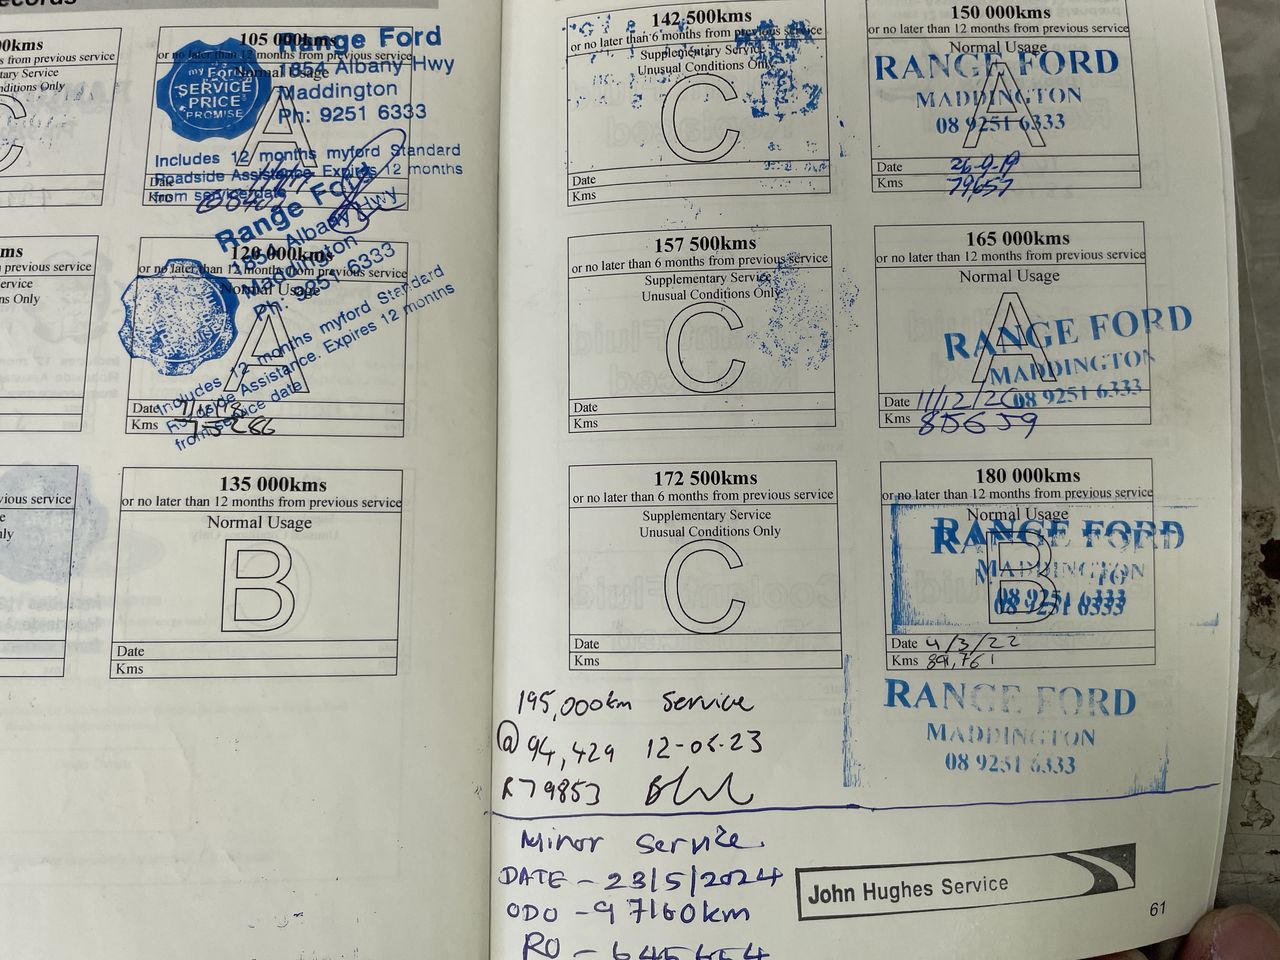 0kms
s from previous service
tary Service
nditions Only
C
Kms
105 000kms
or no later than 12 months from previous service
Normal Usage
A
my FORD
SERVICE
PRICE
PROMISE
Range Ford
1854 Albany Hwy
Maddington
Ph: 9251 6333
Includes 12 months myford Standard
Roadside Assistance Expires 12 months
from service date
Date
ms
previous service
rvice
ns Only
120 000kms
or no later than 12 months from previous service
Normal Usage
A
Range Ford
1854 Albany Hwy
Maddington
Ph: 9251 6333
Includes 12 months myford Standard
Roadside Assistance. Expires 12 months
from service date
Date
Kms 75286
vious service
e
nly
135 000kms
or no later than 12 months from previous service
Normal Usage
B
Date
Kms
142 500kms
or no later than 6 months from previous service
Supplementary Service
Unusual Conditions Only
C
Date
Kms
150 000kms
or no later than 12 months from previous service
Normal Usage
A
RANGE FORD
MADDINGTON
08 9251 6333
Date 26-9-19
Kms 79,657
157 500kms
or no later than 6 months from previous service
Supplementary Service
Unusual Conditions Only
C
Date
Kms
165 000kms
or no later than 12 months from previous service
Normal Usage
A
RANGE FORD
MADDINGTON
08 9251 6333
Date 11/12/20
Kms 85659
172 500kms
or no later than 6 months from previous service
Supplementary Service
Unusual Conditions Only
C
Date
Kms
180 000kms
or no later than 12 months from previous service
Normal Usage
B
RANGE FORD
MADDINGTON
08 9251 6333
Date 4/3/22
Kms 89,761
RANGE FORD
MADDINGTON
08 9251 6333
195,000km Service
@ 94,429
R79853
Minor Service
DATE - 23/5/2024
ODO - 97160km
RO - 645654
John Hughes Service
61